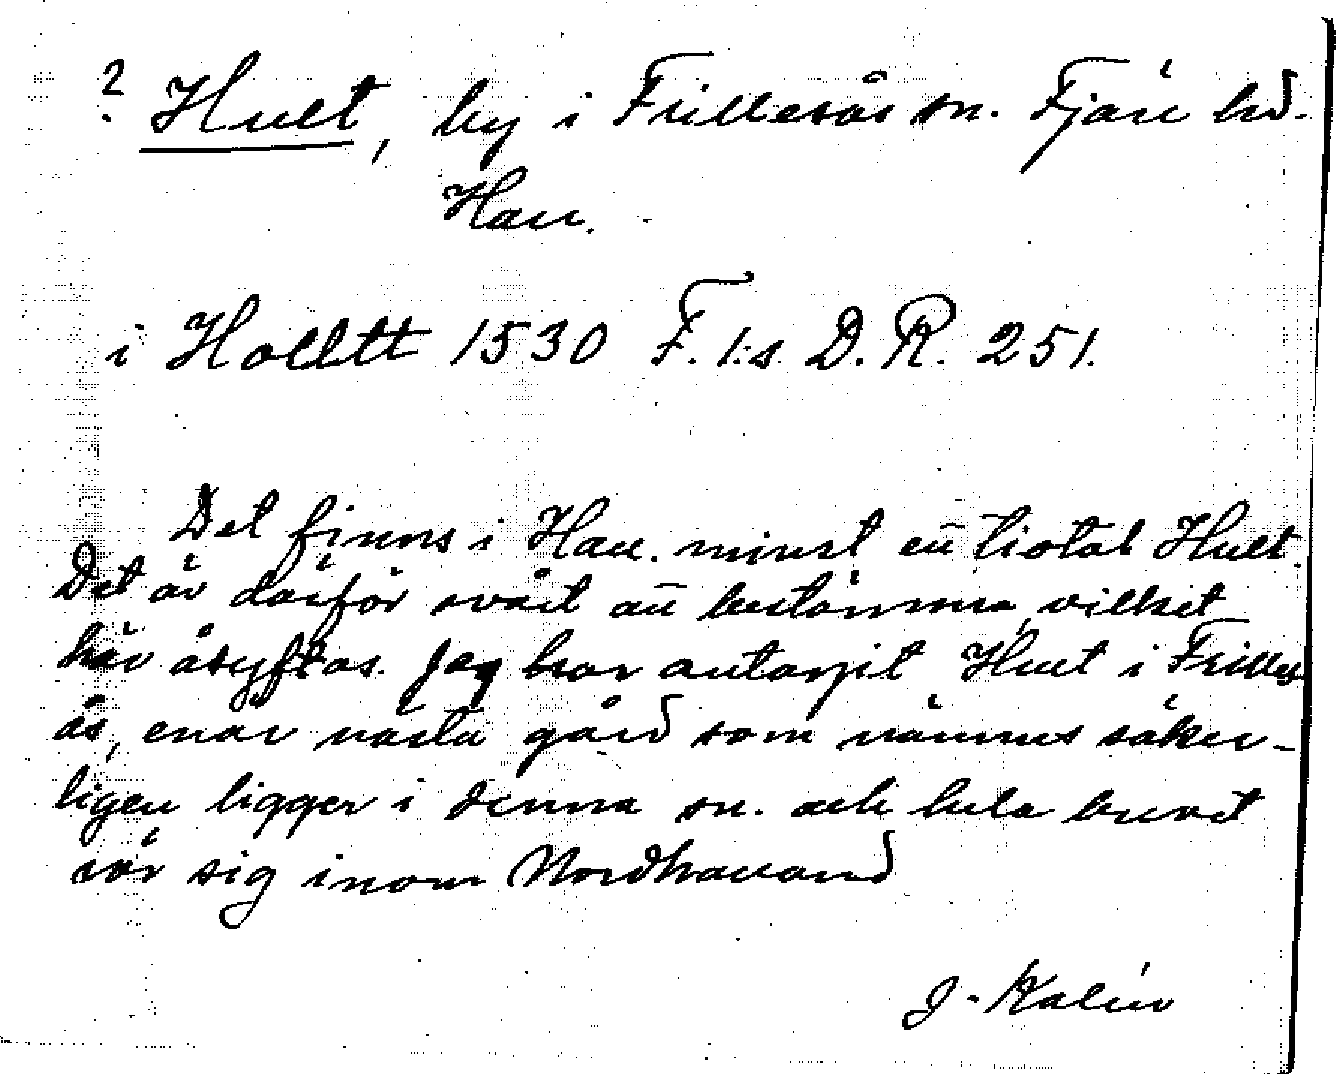 ? Hult, by i Frillesås sn. Fjäre hd.
Hall.
i Holltt 1530 F. I:s D. R. 251.
Det finns i Hall. minst ett tiotal Hult.
Det är därför svårt att bestämma, vilket
här åsyftas. Jag har antagit Hult i Frilles
ås, enär nästa gård som nämnes säker-
ligen ligger i denna sn. och hela brevet
rör sig inom Nordhalland
J. Kalén